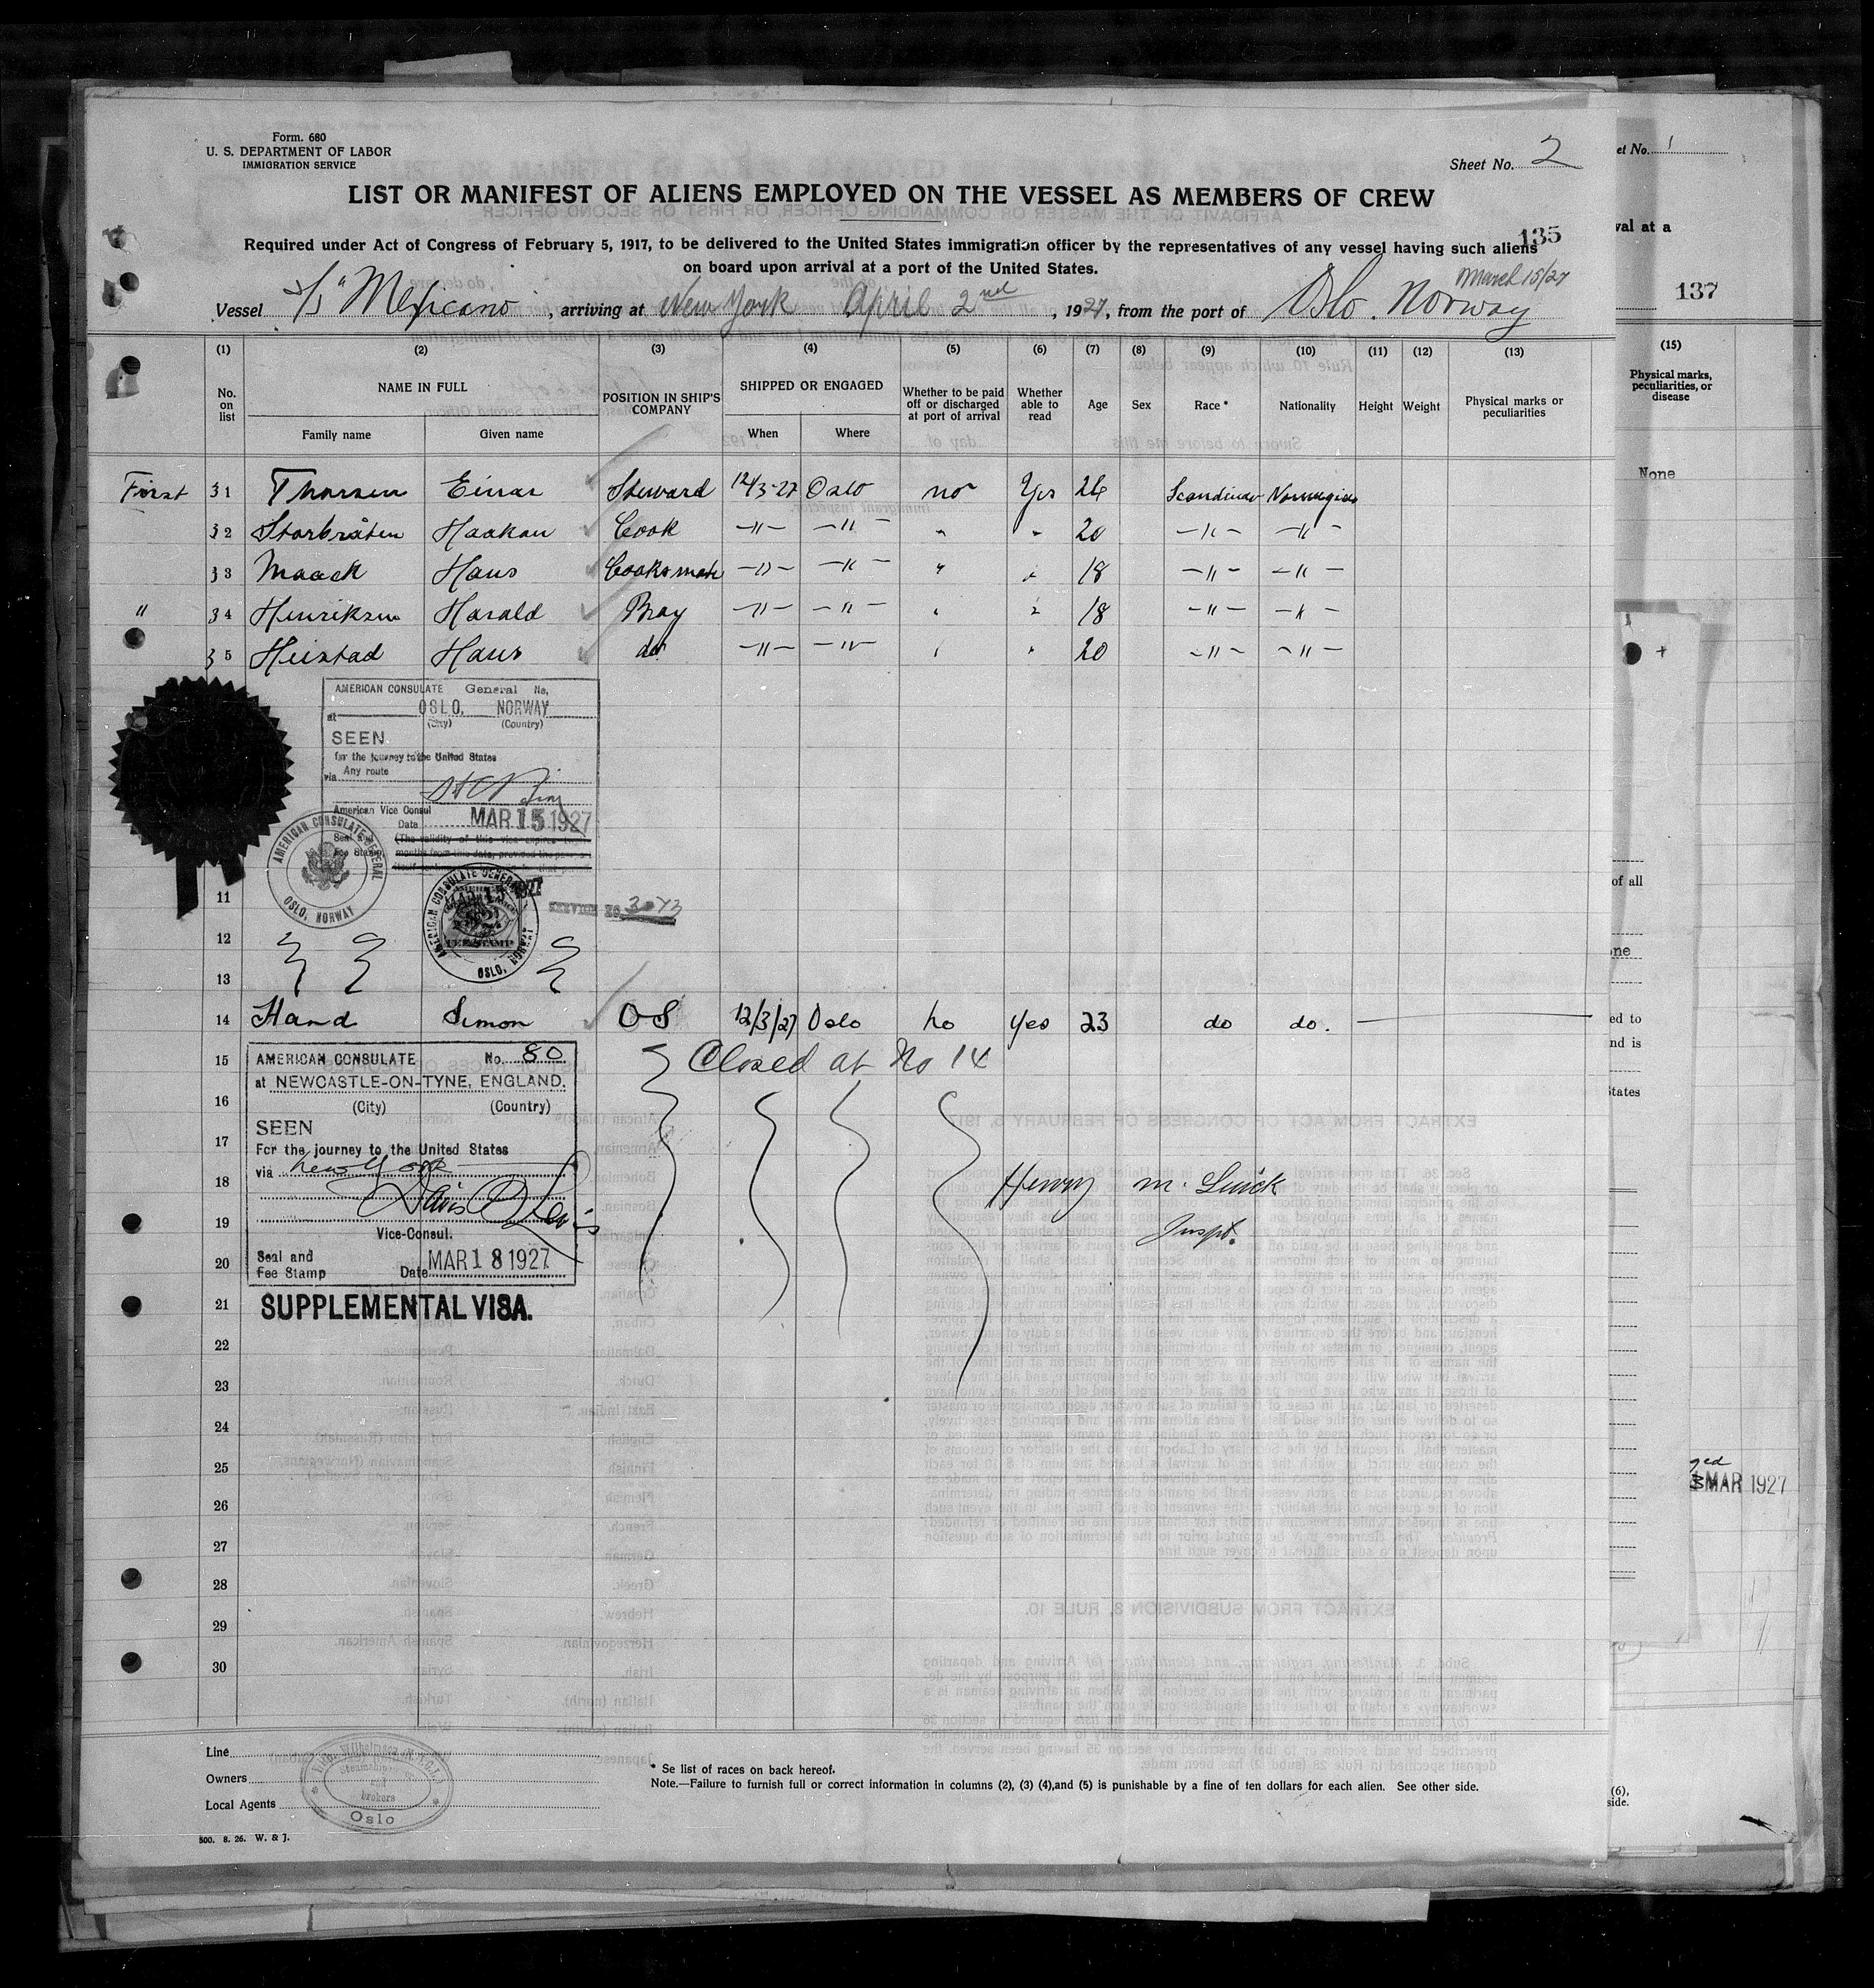 Form. 680
U. S. DEPARTMENT OF LABOR
IMMIGRATION SERVICE
Sheet No. 2
LIST OR MANIFEST OF ALIENS EMPLOYED ON THE VESSEL AS MEMBERS OF CREW
135
Required under Act of Congress of February 5, 1917, to be delivered to the United States immigration officer by the representatives of any vessel having such aliens
on board upon arrival at a port of the United States.
March 15/27
Vessel S/S "Mexicano", arriving at New York April 2nd, 1927, from the port of Oslo. Norway
(1) (2) (3) (4) (5) (6) (7) (8) (9) (10) (11) (12) (13)
No. on list NAME IN FULL Family name Given name POSITION IN SHIP'S COMPANY SHIPPED OR ENGAGED When Where Whether to be paid off or discharged at port of arrival Whether able to read Age Sex Race * Nationality Height Weight Physical marks or peculiarities
First 31 Thorsen Einar Steward 12/3-27 Oslo no Yes 26 Scandinav Norwegian
32 Storbråten Haakon Cook -"- -"- " " 20 -"- -"-
33 Maack Hans Cooks mate -"- -"- " " 18 -"- -"-
" 34 Henriksen Harald Boy -"- -"- " " 18 -"- -"-
35 Heistad Hans do -"- -"- " " 20 -"- -"-
AMERICAN CONSULATE General No,
at OSLO, NORWAY
(City) (Country)
SEEN
for the journey to the United States
via Any route
American Vice Consul
Date MAR 15 1927
Seal &
Fee Stamp
(The validity of this vice expires
months from this date, provided the
AMERICAN CONSULATE GENERAL
OSLO, NORWAY
AMERICAN CONSULATE GENERAL
OSLO, NORWAY
SERVICE NO. 3073
11
12
13
14 Hand Simon OS 12/3/27 Oslo no yes 23 do do.
15 Closed at No 14
AMERICAN CONSULATE No. 80
at NEWCASTLE-ON-TYNE, ENGLAND.
(City) (Country)
SEEN
For the journey to the United States
via New York
Vice-Consul.
Seal and
Fee Stamp
Date MAR 18 1927
SUPPLEMENTAL VISA.
16
17
18 Henry M. Luick
19 Inspt.
20
21
22
23
24
25
26
27
28
29
30
Line
Owners
Local Agents
Wilhelmsen
Steamship
and
brokers
Oslo
* Se list of races on back hereof.
Note.—Failure to furnish full or correct information in columns (2), (3) (4),and (5) is punishable by a fine of ten dollars for each alien. See other side.
500. 8. 26. W. & J.
et No. 1
val at a
137
(15)
Physical marks, peculiarities, or disease
None
of all
ne
ed to
nd is
States
ged
MAR 1927
(6),
side.